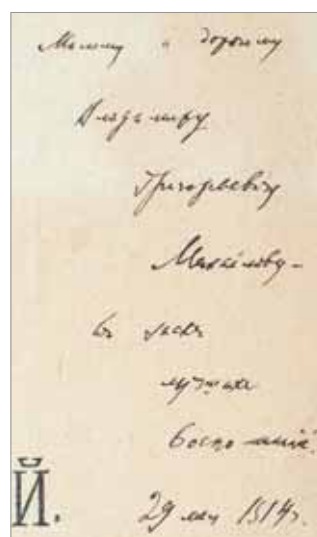 Милому и дорогому
Владимиру
Григорьевичу
Михайлову –
въ знакъ
лучшихъ
воспо
Й.
29 мая 1914 г.